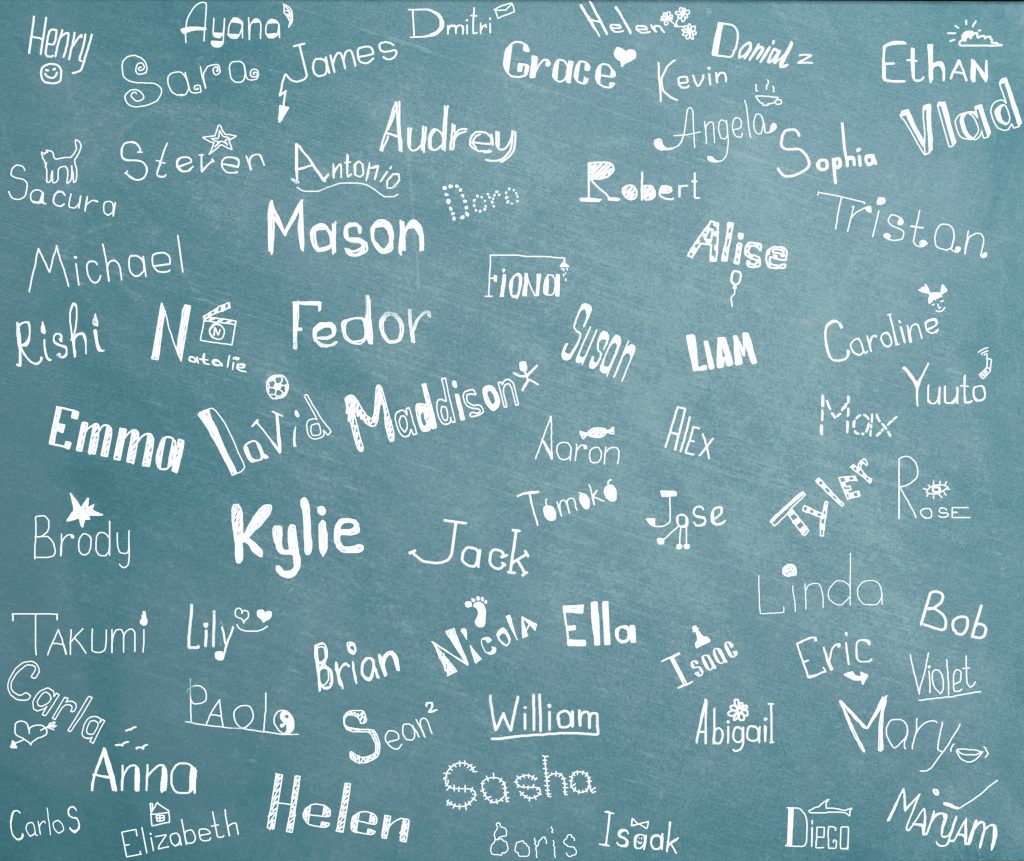 Henry
Ayana
Dmitri
Helen
Danial z
Ethan
Sara
James
Grace
Kevin
Vlad
Audrey
Angela
Sophia
Sacura
Steven
Antonio
Doro
Robert
Tristan
Mason
Alise
Michael
Fiona
Rishi
Natalie
N
Fedor
Susan
Liam
Caroline
Yuuto
Emma
David
Maddison
Aaron
Alex
Max
Brody
Kylie
Jack
Tomoko
Jose
Tyler
Rose
Linda
Takumi
Lily
Brian
Nicola
Ella
Isaac
Eric
Bob
Violet
Carla
Paolo
Sean2
William
Abigail
Mary
Anna
Helen
Sasha
Carlos
Elizabeth
Boris
Isaak
Diego
Maryam